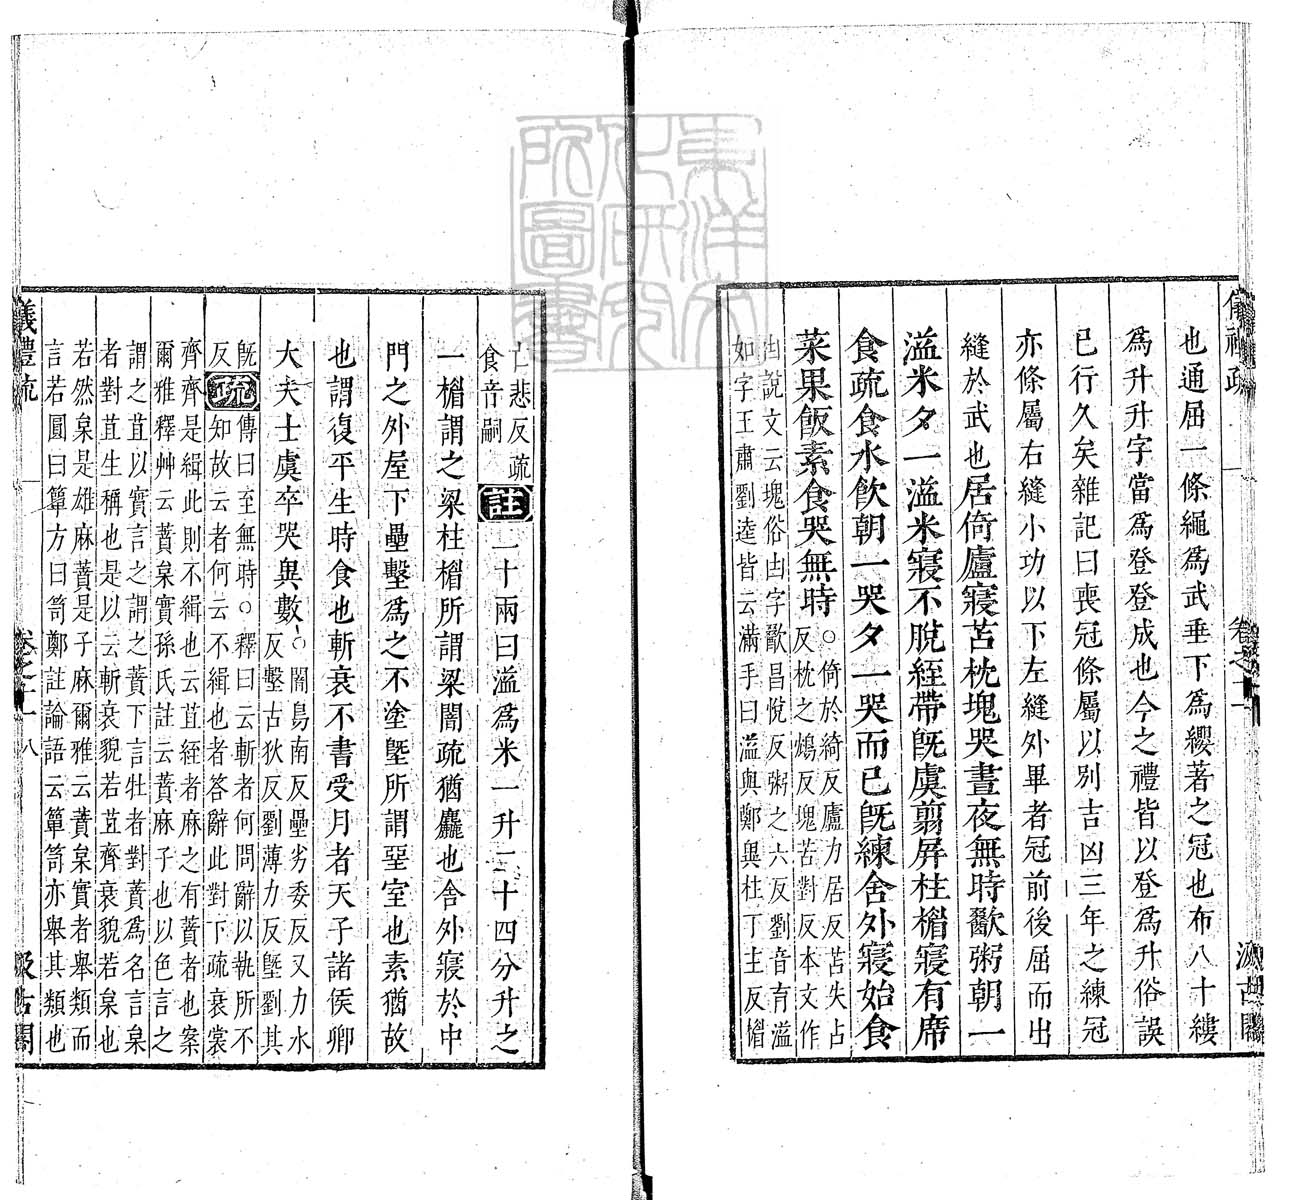 儀禮疏
卷之十一
汲古閣
也通屈一條繩爲武垂下爲纓著之冠也布八十縷
爲升升字當爲登登成也今之禮皆以登爲升俗誤
已行久矣雜記曰喪冠條屬以别吉凶三年之練冠
亦條屬右縫小功以下左縫外畢者冠前後屈而出
縫於武也居倚廬寢苫枕塊哭晝夜無時歠粥朝一
溢米夕一溢米寢不脫絰帶旣虞翦屏柱楣寢有席
食疏食水飲朝一哭夕一哭而已旣練舍外寢始食
菜果飯素食哭無時○倚於綺反廬力居反苫失占
反枕之鴆反塊苦對反本文作
凷說文云塊俗凷字歠昌悅反粥之六反劉音育溢
如字王肅劉逵皆云滿手曰溢與鄭異柱丁主反楣
亡悲反疏
食音嗣
註二十兩曰溢爲米一升二十四分升之
一楣謂之梁柱楣所謂梁闇疏猶麤也舍外寢於中
門之外屋下壘墼爲之不塗塈所謂堊室也素猶故
也謂復平生時食也斬衰不書受月者天子諸侯卿
大夫士虞卒哭異數○闇烏南反壘劣委反又力水
反墼古狄反劉薄力反塈劉其
旣
反
疏傳曰至無時○釋曰云斬者何問辭以執所不
知故云者何云不緝也者答辭此對下疏衰裳
齊齊是緝此則不緝也云苴絰者麻之有蕡者也案
爾雅釋艸云蕡枲實孫氏註云蕡麻子也以色言之
謂之苴以實言之謂之蕡下言牡者對蕡爲名言枲
者對苴生稱也是以云斬衰貌若苴齊衰貌若枲也
若然枲是雄麻蕡是子麻爾雅云蕡枲實者舉類而
言若圓曰簞方曰笥鄭註論語云簞笥亦舉其類也
儀禮疏
卷之十一
八
汲古閣
東洋文化研究所圖書